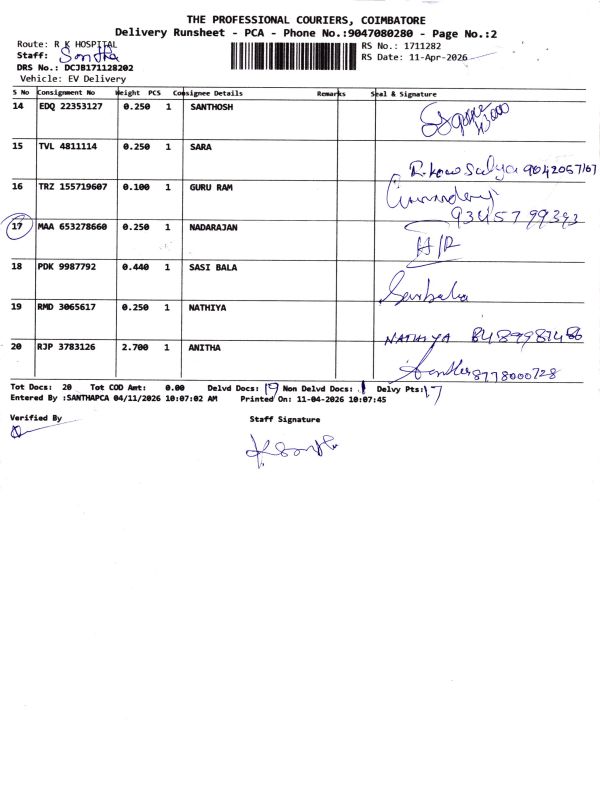 THE PROFESSIONAL COURIERS, COIMBATORE
Delivery Runsheet - PCA - Phone No.:9047080280 - Page No.:2
Route: R K HOSPITAL
RS No.: 1711282
Staff: Santha
RS Date: 11-Apr-2026
DRS No.: DCJB171128202
Vehicle: EV Delivery
S No Consignment No Weight PCS Consignee Details Remarks Seal & Signature
14 EDQ 22353127 0.250 1 SANTHOSH
15 TVL 4811114 0.250 1 SARA
16 TRZ 155719607 0.100 1 GURU RAM 9345799393
17 MAA 653278660 0.250 1 NADARAJAN H/R
18 PDK 9987792 0.440 1 SASI BALA Sasibala
19 RMD 3065617 0.250 1 NATHIYA NATHIYA
20 RJP 3783126 2.700 1 ANITHA 8778000728
Tot Docs: 20 Tot COD Amt: 0.00 Delvd Docs: 19 Non Delvd Docs: 1 Delvy Pts: 17
Entered By :SANTHAPCA 04/11/2026 10:07:02 AM Printed On: 11-04-2026 10:07:45
Verified By Staff Signature